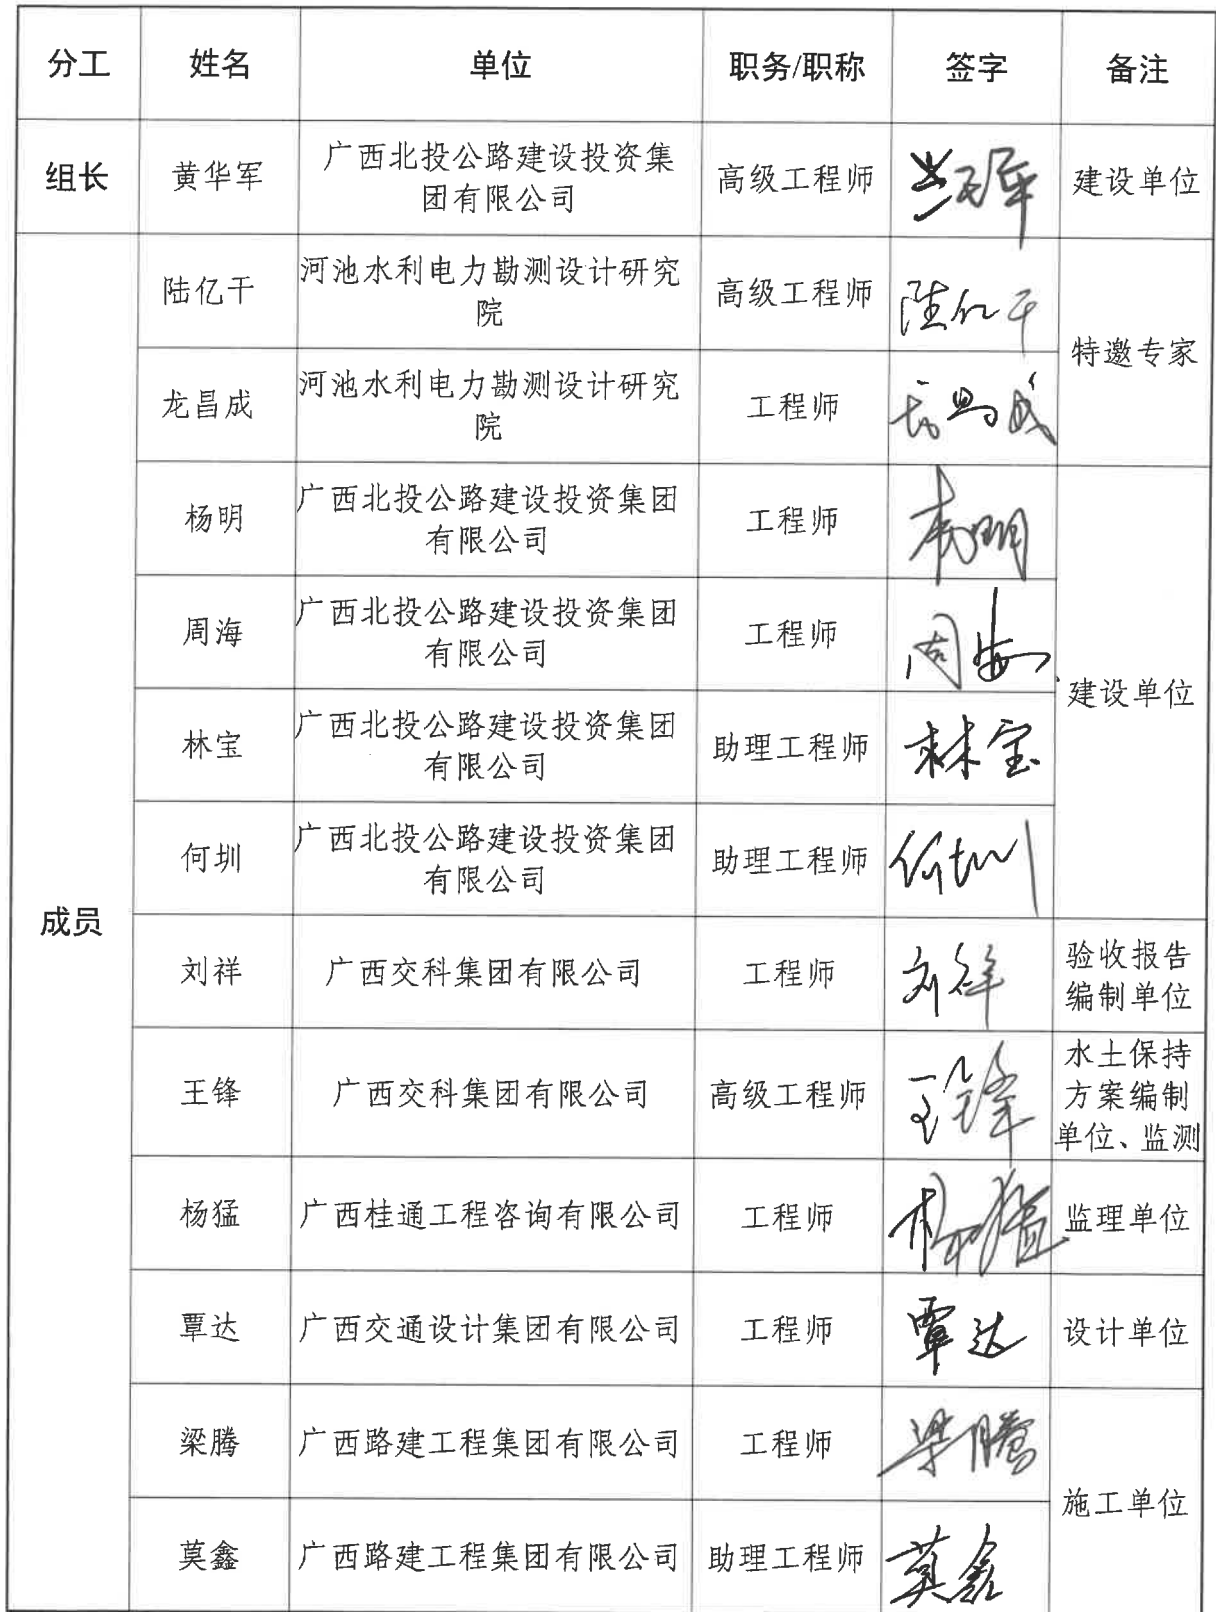 分工 姓名 单位 职务/职称 签字 备注
组长 黄华军 广西北投公路建设投资集
团有限公司 高级工程师 建设单位
成员
陆亿干 河池水利电力勘测设计研究
院 高级工程师 陆亿干 特邀专家
龙昌成 河池水利电力勘测设计研究
院 工程师 龙昌成
杨明 广西北投公路建设投资集团
有限公司 工程师 杨明 建设单位
周海 广西北投公路建设投资集团
有限公司 工程师 周海
林宝 广西北投公路建设投资集团
有限公司 助理工程师 林宝
何圳 广西北投公路建设投资集团
有限公司 助理工程师 何圳
刘祥 广西交科集团有限公司 工程师 刘祥 验收报告
编制单位
王锋 广西交科集团有限公司 高级工程师 王锋 水土保持
方案编制
单位、监测
杨猛 广西桂通工程咨询有限公司 工程师 杨猛 监理单位
覃达 广西交通设计集团有限公司 工程师 覃达 设计单位
梁腾 广西路建工程集团有限公司 工程师 梁腾 施工单位
莫鑫 广西路建工程集团有限公司 助理工程师 莫鑫